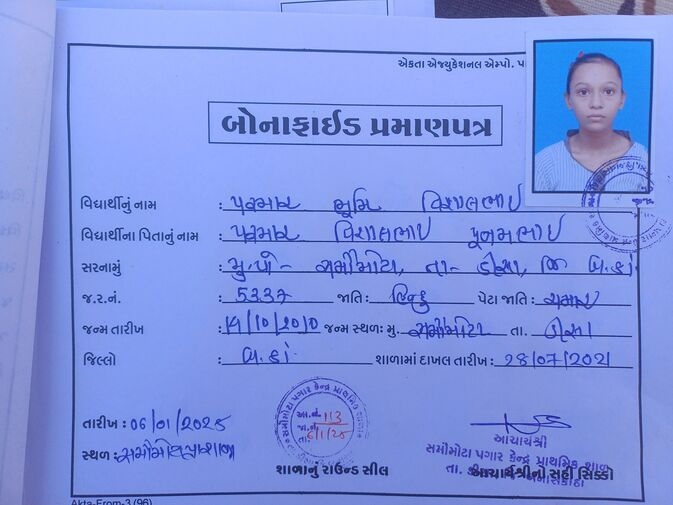 એકતા એજ્યુકેશનલ એમ્પો. પા
બોનાફાઈડ પ્રમાણપત્ર
વિદ્યાર્થીનું નામ : પરમાર ભૂમિ વિશાલભાઈ
વિદ્યાર્થીના પિતાનું નામ : પરમાર વિશાલભાઈ પૂનમભાઈ
સરનામું : મુ.પો- સમીમોટા, તા- ડીસા, જિ બ.કાં
જ.ર.નં. : ૬૩૩૭ જાતિ : હિન્દુ પેટા જાતિ : ચમાર
જન્મ તારીખ : 14/10/2010 જન્મ સ્થળ: મુ. સમીમોટા તા. ડીસા
જિલ્લો : બ.કાં. શાળામાં દાખલ તારીખ : 28/07/2021
તારીખ : 06/01/2025
સ્થળ :
સમીમોટા પગાર કેન્દ્ર પ્રાથમિક શાળા
આ.નં. 113
જા.નં.
તા. 6/1/25
શાળાનું રાઉન્ડ સીલ
આચાર્યશ્રી
સમીમોટા પગાર કેન્દ્ર પ્રાથમિક શાળા
તા. ડીસા બનાસકાંઠા
આચાર્યશ્રીનો સહી સિક્કો
Akta-From-3 (96)